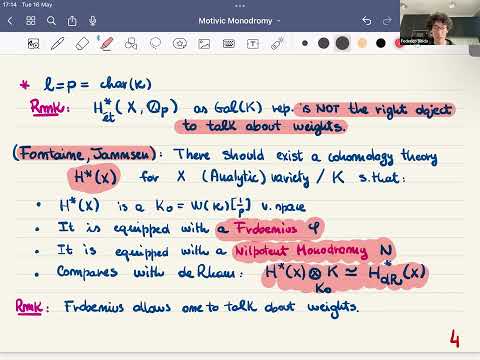 17:14 Tue 16 May
Motivic Monodromy
* l = p = char(k)
Rmk: H*ét (X, ℚp) as Gal(K) rep. is NOT the right object
to talk about weights.
(Fontaine, Jannsen): There should exist a cohomology theory
H*(X) for X (Analytic) variety / K s.that:
• H*(X) is a K₀ = W(k)[1/p] v. space
• It is equipped with a Frobenius φ
• It is equipped with a Nilpotent Monodromy N
• Compares with de Rham: H*(X) ⊗K₀ K ≃ H*dR(X)
Rmk: Frobenius allows one to talk about weights.
4